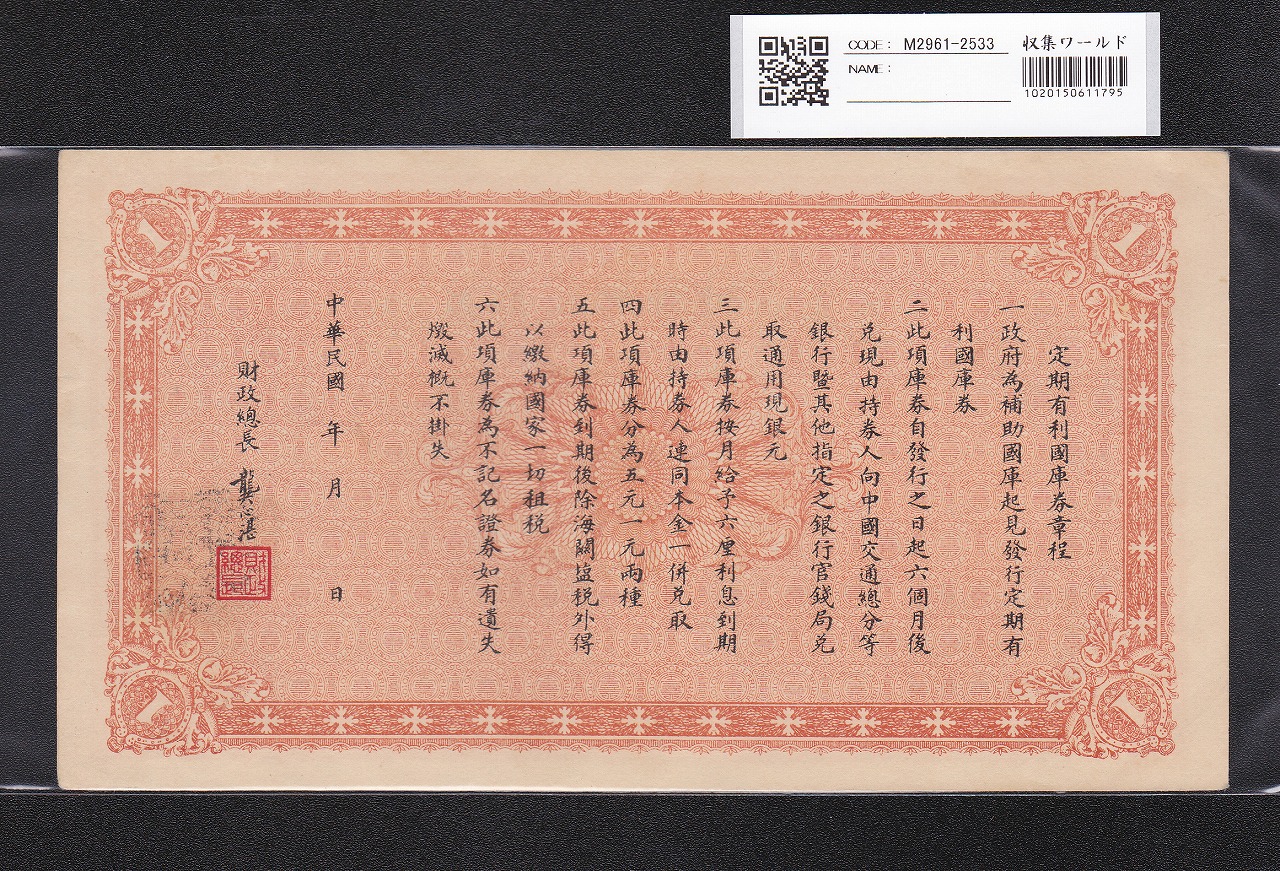 CODE: M2961-2533
収集ワールド
NAME:
1020150611795
定期有利國庫券章程
一政府為補助國庫起見發行定期有
利國庫券
二此項庫券自發行之日起六個月後
兌現由持券人向中國交通總分等
銀行暨其他指定之銀行官錢局兌
取通用現銀元
三此項庫券按月給予六厘利息到期
時由持券人連同本金一併兌取
四此項庫券分為五元一元兩種
五此項庫券到期後除海關塩税外得
以繳納國家一切租税
六此項庫券為不記名證券如有遺失
燬滅概不掛失
中華民國 年 月 日
財政總長 龔心湛
財政總長
1
1
1
1